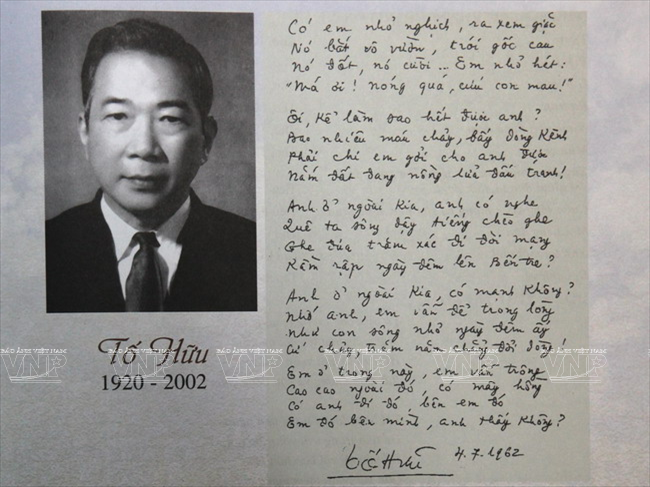 Có em nhỏ nghịch, ra xem giặc
Nó bắt vô vườn, trói gốc cau
Nó đốt, nó cười ... Em nhỏ hét:
"Má ơi! nóng quá, cứu con mau!"
Ôi, kể làm sao hết được anh?
Bao nhiêu máu chảy, bấy dòng kênh
Phải chi em gởi cho anh được
Nắm đất đang nồng lửa đấu tranh!
Anh ở ngoài kia, anh có nghe
Quê ta sông dậy tiếng chèo ghe
Ghe đưa trăm xác đi đòi mạng
Rầm rập ngày đêm lên Bến tre?
Anh ở ngoài kia, có mạnh không?
Nhớ anh, em vẫn để trong lòng
Như con sông nhỏ ngày đêm ấy
Cứ chảy, trăm năm chẳng đổi dòng!
Em ở trong này, em vẫn trông
Cao cao ngoài đó, có mây hồng
Có anh đi đó, bên em đó
Em đó bên mình, anh thấy không?
Tố Hữu 4.7.1962
Tố Hữu
1920 - 2002
BÁO ẢNH VIỆT NAM
VNP
BÁO ẢNH VIỆT NAM
VNP
BÁO ẢNH VIỆT NAM
VNP